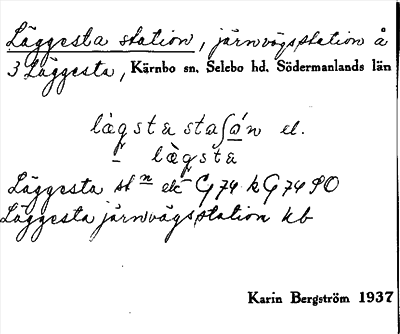 Läggesta station, järnvägsstation å
3 Läggesta, Kärnbo sn, Selebo hd, Södermanlands län
lägsta staʃón el.
lägsta
Läggesta stn ek G 74 k G 74 90
Läggesta järnvägsstation kb
Karin Bergström 1937